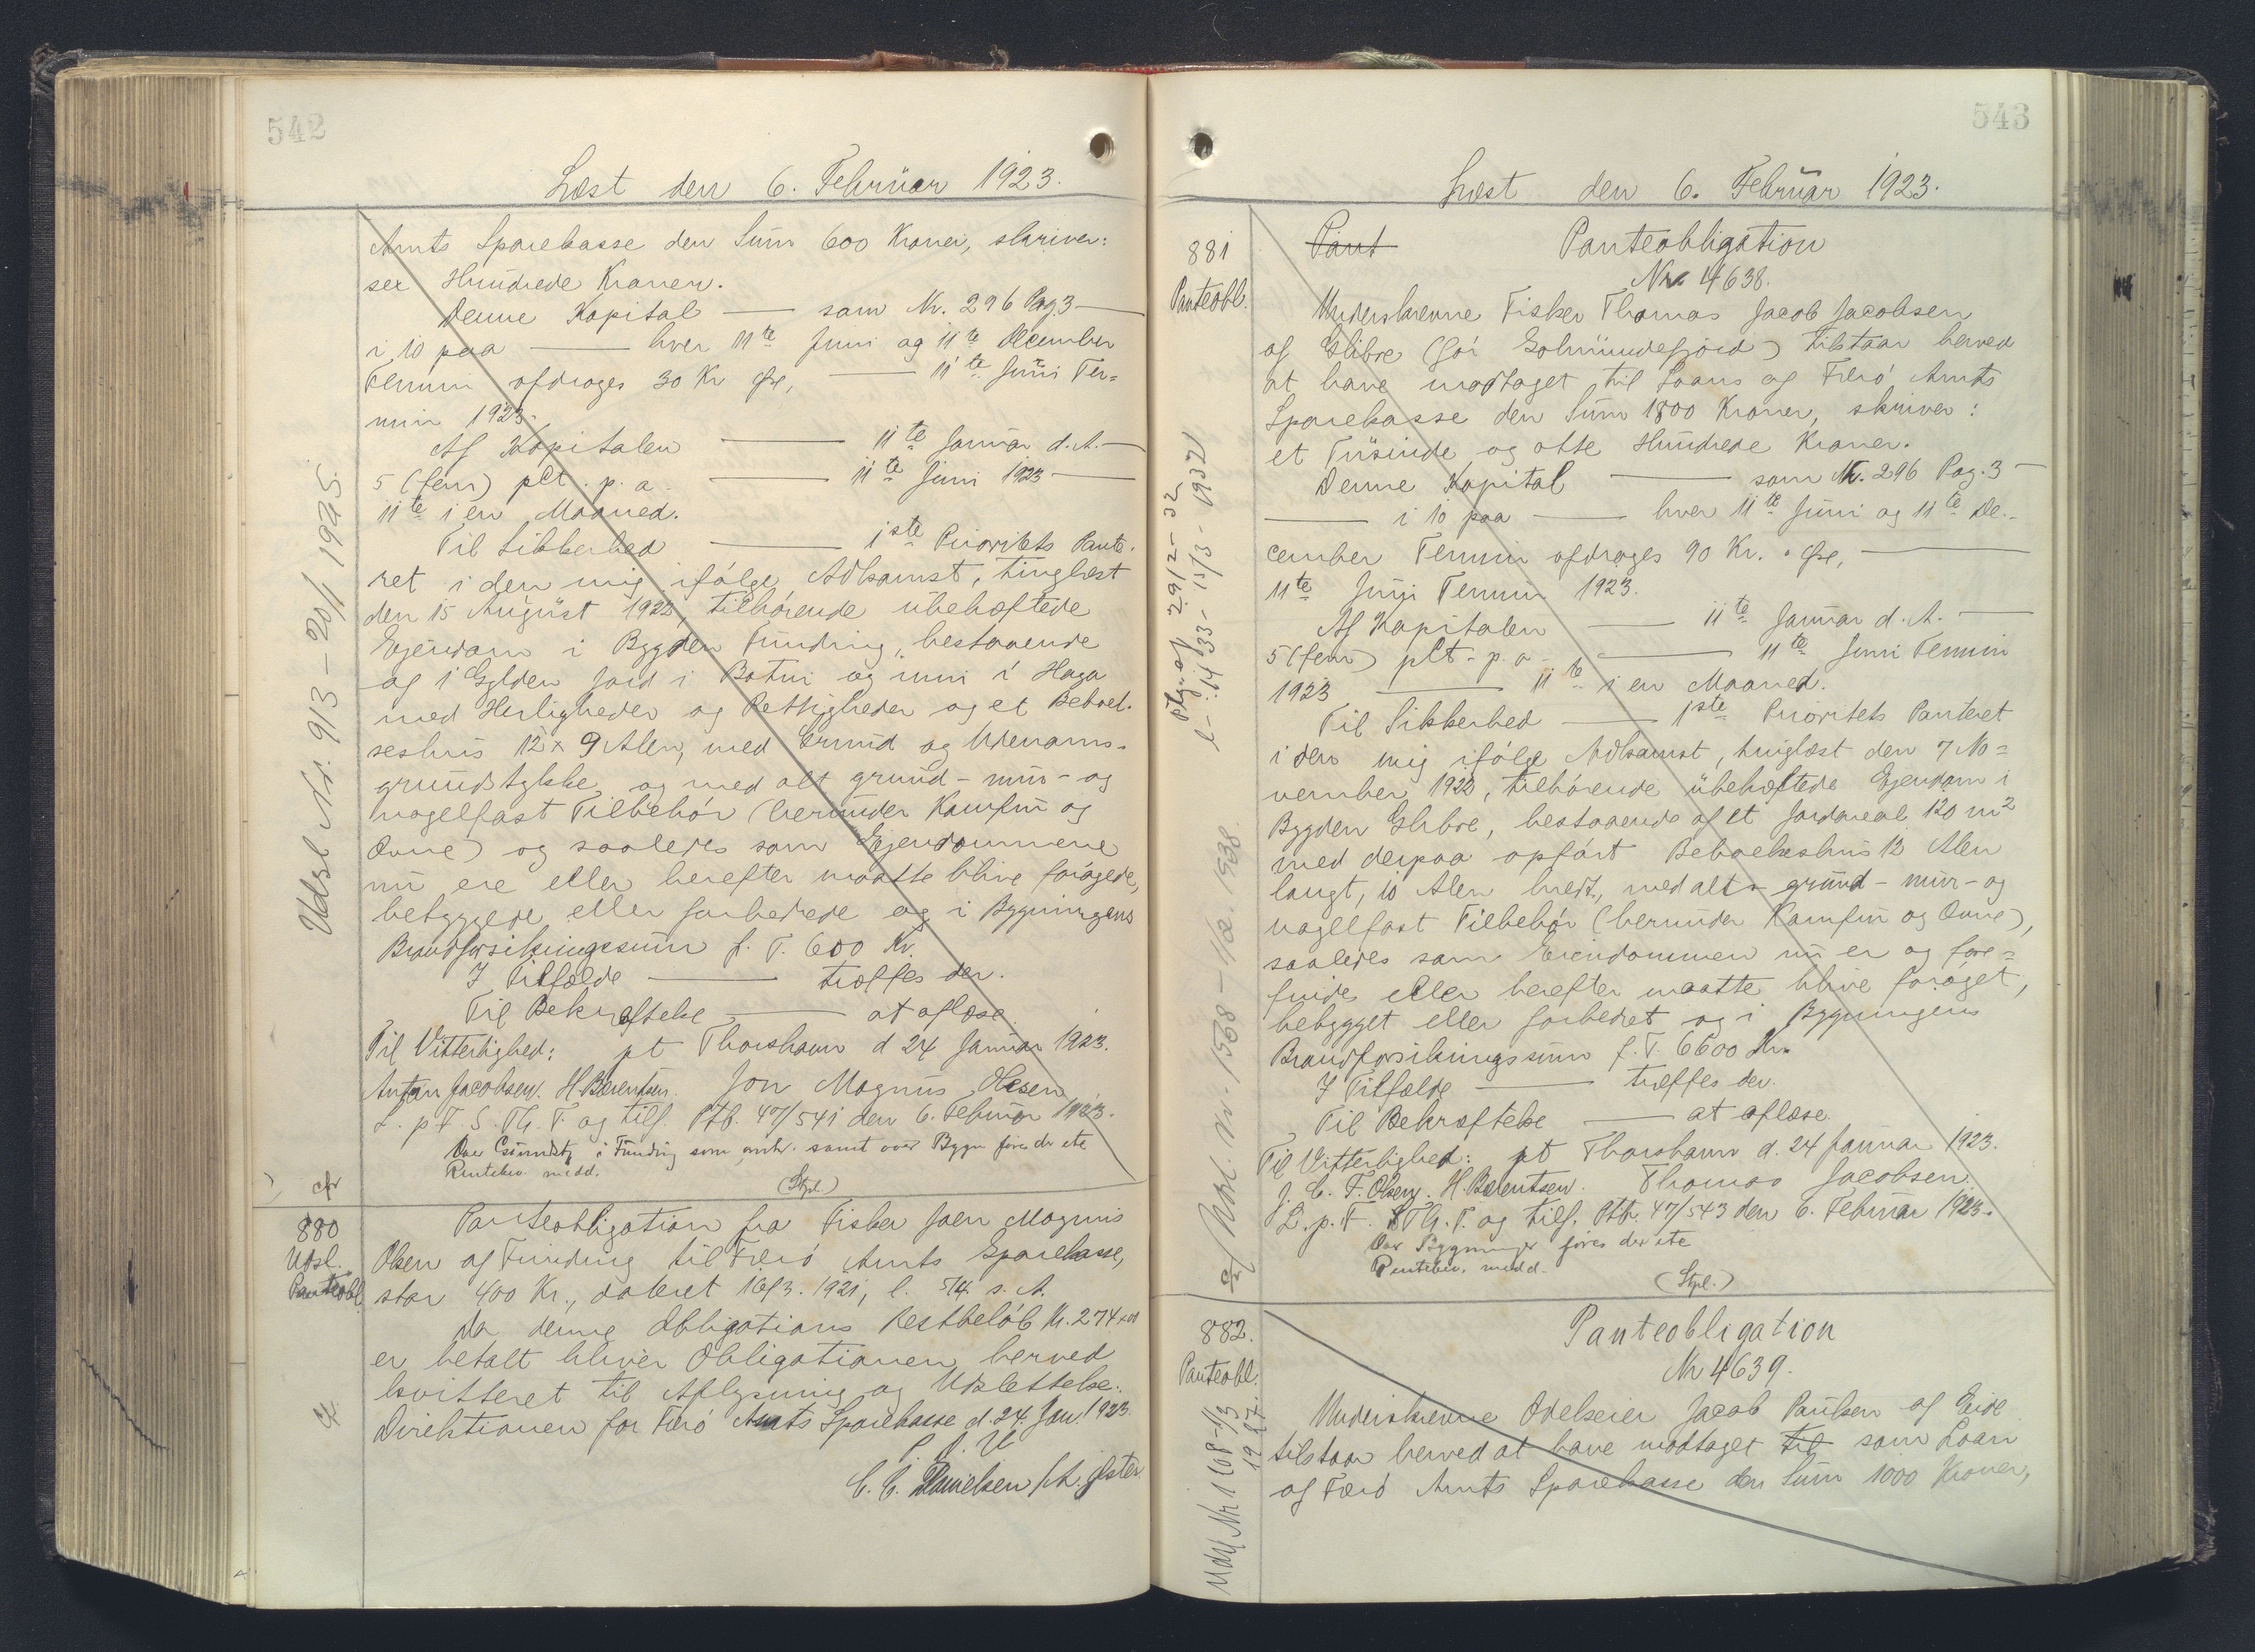 542
Læst den 6. Februar 1923.
Amts Sparekasse den Sum 600 Kroner, skriver:
sex Hundrede Kroner.
Denne Kapital — som Nr. 296 Pag 3 —
i 10 paa — hver 11te Juni og 11te December
Termin afdrages 30 Kr Øre, — 11te Juni Ter=
min 1923.
Af Kapitalen — 11te Januar d. A. —
5 (fem) pCt. p. a. — 11te Juni 1923 —
11te i en Maaned.
Til Sikkerhed — 1ste Prioritets Pante-
ret i den mig ifølge Adkomst, tinglæst
den 15 August 1922, tilhørende ubehæftede
Ejendom i Bygden Funding, bestaaende
af 1 Gylden Jord i Botni og inni í Haga
med Herligheder og Rettigheder og et Beboel-
seshus 12 x 9 Alen, med Grund og Udenoms-
grundstykke og med alt grund- mur- og
nagelfast Tilbehør (herunder Komfur og
Ovne) og saaledes som Ejendommene
nu ere eller herefter maatte blive forøgede,
bebyggede eller forbedrede og i Bygningens
Brandforsikringssum f. T. 600 Kr.
I Tilfælde — træffes der.
Til Bekræftelse — at aflæse.
Til Vitterlighed: pt Thorshavn d 24 Januar 1923.
Anton Jacobsen. H Berentsen. Jon Magnus Olsen
L. p F. S. Th. T. og tilf. Ptb. 47/541 den 6. Februar 1923.
Over i Funding som anh. samt over Bygn føres der ete
Rentebev. medd.
(Stpl.)
Udsl Nr. 913 – 20/1 1925.
cfr
880
Udsl.
Panteobl
cf.
Panteobligation fra Fisker Joen Magnus
Olsen af Funding til Færø Amts Sparekasse,
stor 400 Kr., dateret 16/3. 1921, l. 5/4. s. A.
Da denne Obligations Restbeløb Kr. 274
er betalt bliver Obligationen herved
kvitteret til Aflysning og Udslettelse.
Direktionen for Færø Amts Sparekasse d. 24. Jan. 1923.
C. C. Danielsen
543
Læst den 6. Februar 1923.
881
Panteobl.
Pant Panteobligation
Nr. 4638.
Underskrevne Fisker Thomas Jacob Jacobsen
af Glibre (for ) tilstaar herved
at have modtaget til Laans af Færø Amts
Sparekasse den Sum 1800 Kroner, skriver:
et Tusinde og otte Hundrede Kroner.
Denne Kapital — som Nr. 296 Pag. 3 —
— i 10 paa — hver 11te Juni og 11te De-
cember Termin afdrages 90 Kr. Øre, —
11te Juni Termin 1923.
Af Kapitalen — 11te Januar d. A. —
5 (fem) pCt. p. a. — 11te Juni Termin
1923 — 11te i en Maaned.
Til Sikkerhed — 1ste Prioritets Panteret
i den mig ifølge Adkomst, tinglæst den 7 No=
vember 1922, tilhørende ubehæftede Ejendom i
Bygden Glibre, bestaaende af et Jordareal 120 m2
med derpaa opført Beboelseshus 12 Alen
langt, 10 Alen bredt, med alt grund- mur- og
nagelfast Tilbehør (herunder Komfur og Ovne),
saaledes som Ejendommen nu er og fore=
findes eller herefter maatte blive forøget,
bebygget eller forbedret og i Bygningens
Brandforsikringssum f. T. 6600 Kr.
I Tilfælde — træffes der.
Til Bekræftelse — at aflæse.
Til Vitterlighed: pt Thorshavn d. 24 Januar 1923.
J. C. F. Olsen. H. Berentsen. Thomas Jacobsen.
L. p. F. S. Th. T. og tilf. Ptb. 47/543 den 6. Februar 1923.
Over Bygninger føres der ete
Rentebev. medd.
(Stpl.)
29/2-32
1433 – 15/3 – 1932
cf Udsl. Nr. 1568 – 1/2. 1938.
882.
Panteobl.
Udsl Nr 1168 – 1/3 1927.
Panteobligation
Nr 4639.
Underskrevne Odelseier Jacob Paulsen af Eide
tilstaar herved at have modtaget til som Laan
af Færø Amts Sparekasse den Sum 1000 Kroner,